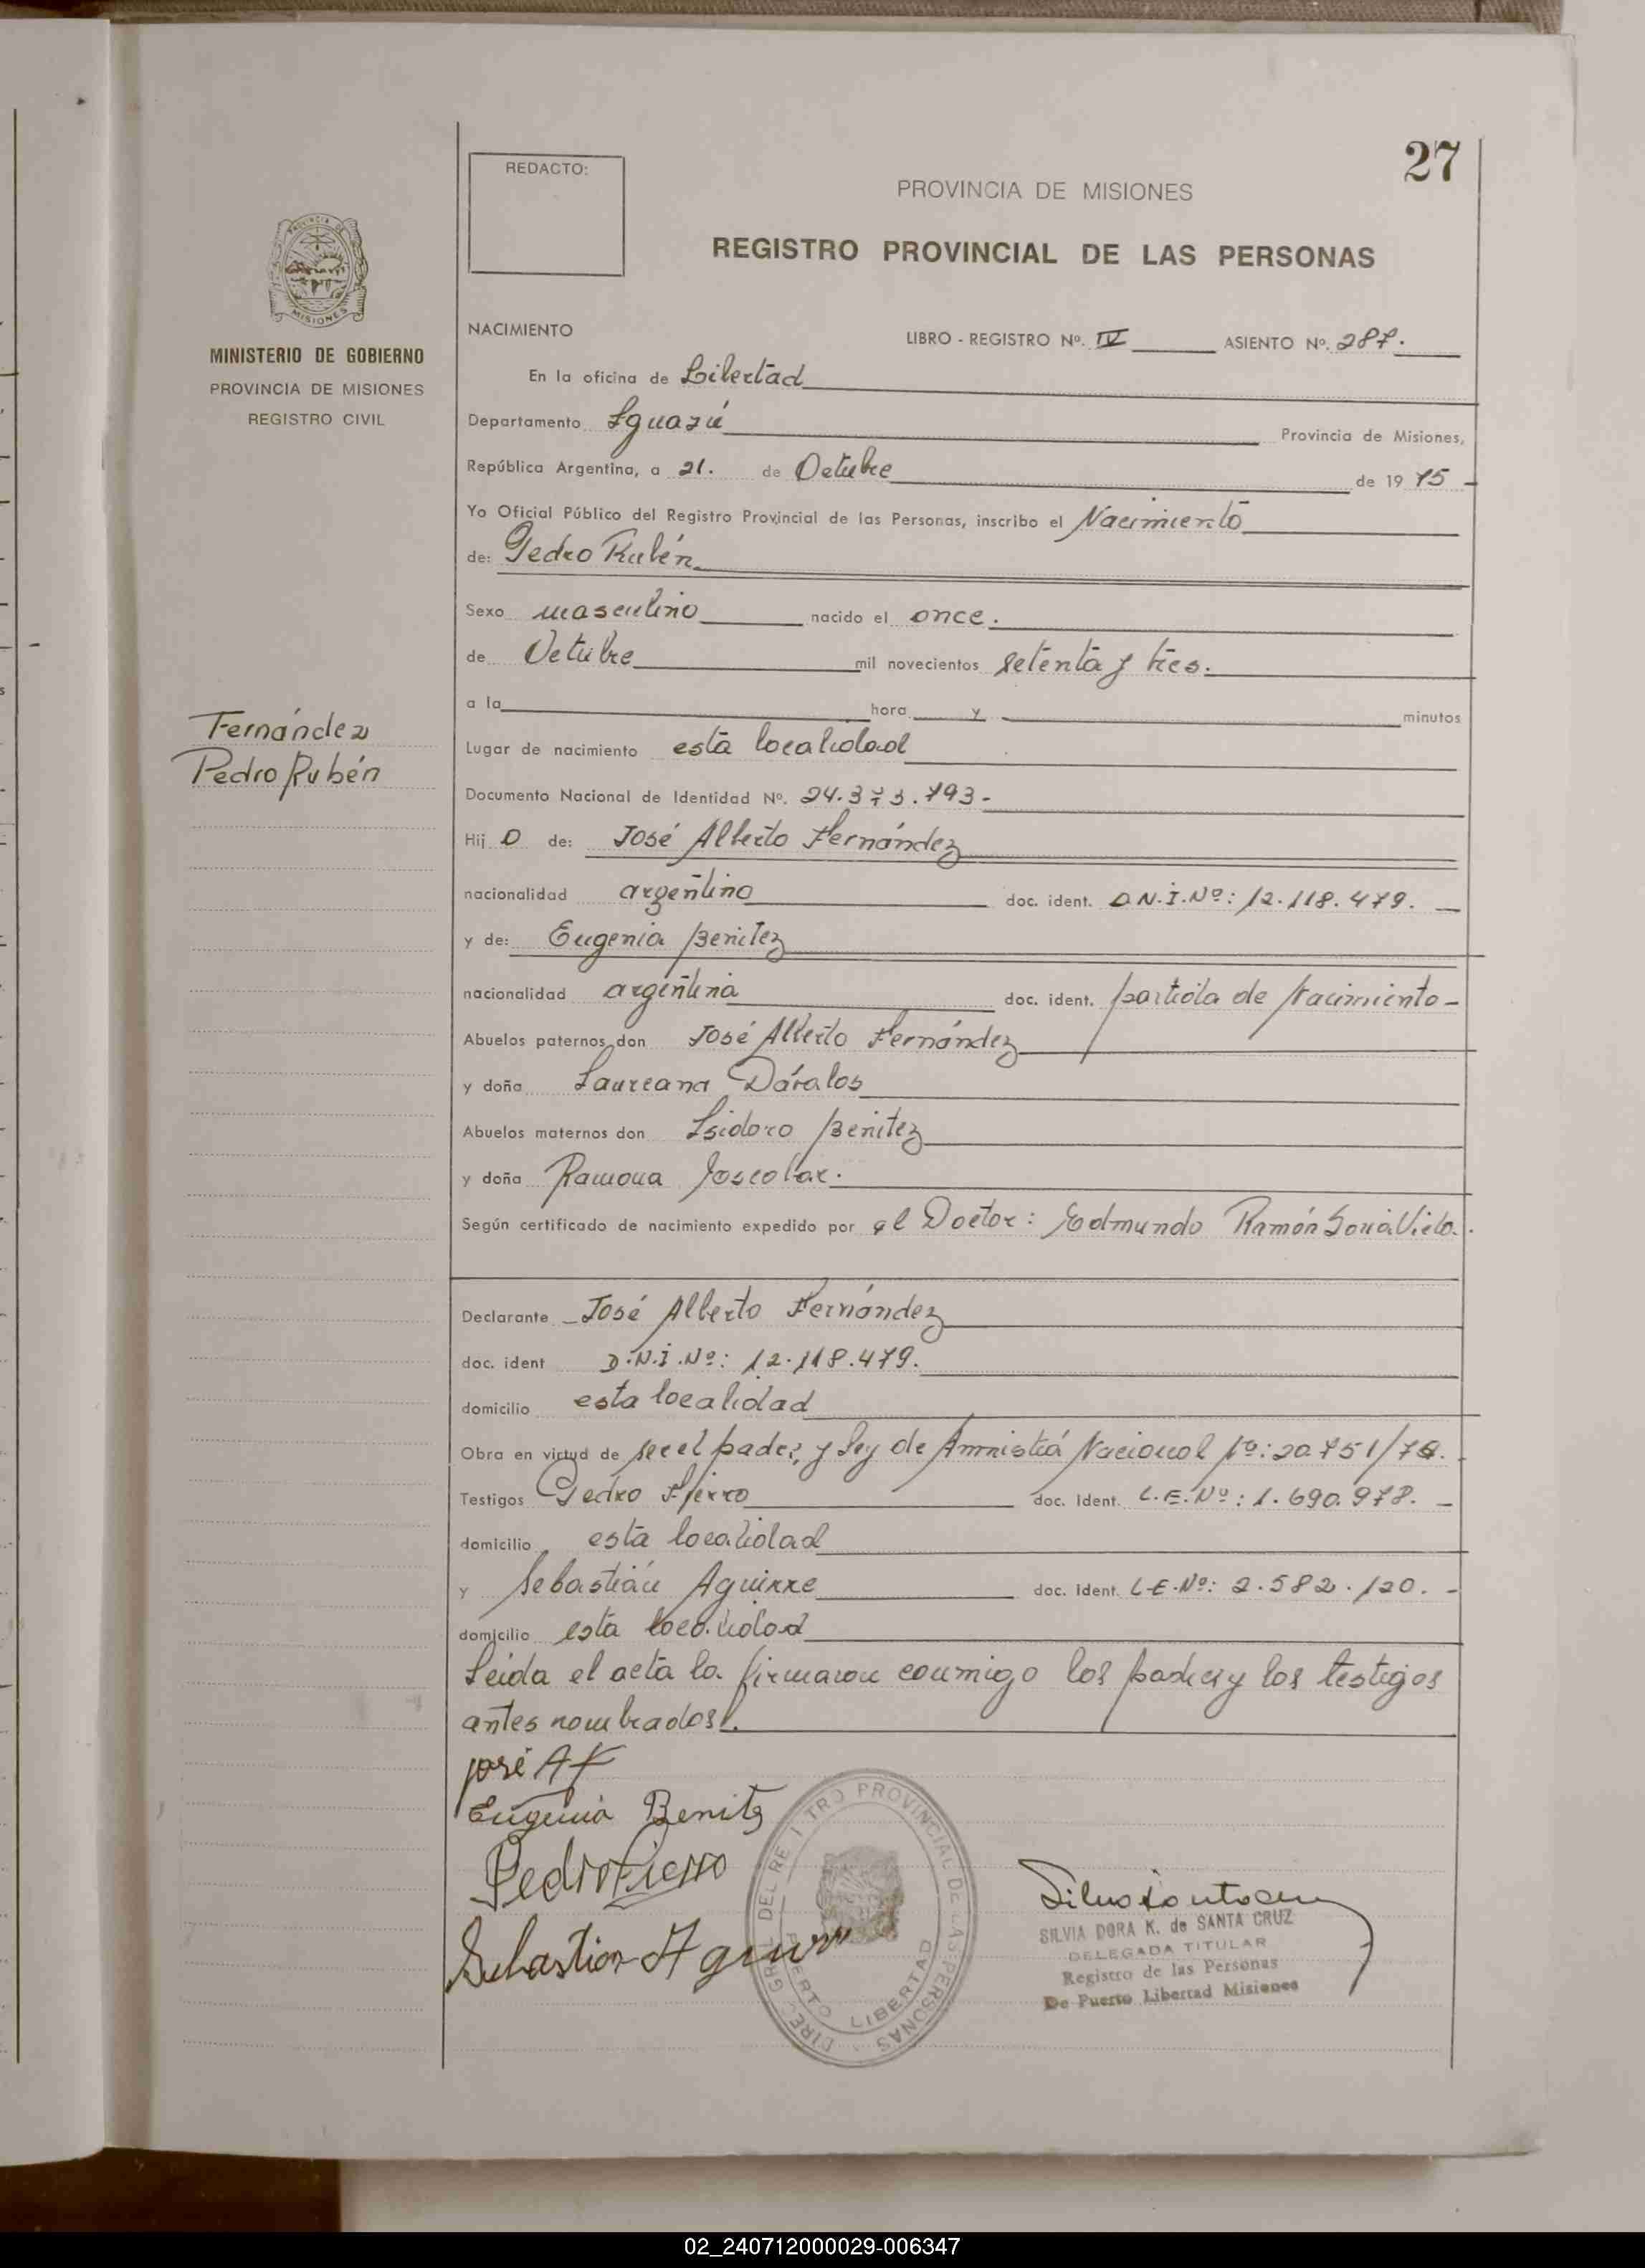 27
REDACTO:
PROVINCIA DE MISIONES
REGISTRO PROVINCIAL DE LAS PERSONAS
PROVINCIA DE
MISIONES
MINISTERIO DE GOBIERNO
PROVINCIA DE MISIONES
REGISTRO CIVIL
NACIMIENTO LIBRO - REGISTRO Nº. IV ASIENTO Nº. 287.
En la oficina de Libertad
Departamento Iguazú Provincia de Misiones,
República Argentina, a 21. de Octubre de 19 75 -
Yo Oficial Público del Registro Provincial de las Personas, inscribo el Nacimiento
de: Pedro Rubén
Sexo masculino nacido el once.
de Octubre mil novecientos setenta y tres.
a la hora y minutos
Fernández
Pedro Rubén
Lugar de nacimiento esta localidad
Documento Nacional de Identidad Nº. 24.373.793-
Hij o de: José Alberto Fernández
nacionalidad argentino doc. ident. D.N.I.Nº: 12.118.479. -
y de: Eugenia Benitez
nacionalidad argentina doc. ident. partida de Nacimiento-
Abuelos paternos don José Alberto Fernández
y doña Laureana Dávalos
Abuelos maternos don Isidoro Benitez
y doña Ramona
Según certificado de nacimiento expedido por el Doctor: Edmundo Ramón
Declarante - José Alberto Fernández
doc. ident D.N.I.Nº: 12.118.479.
domicilio esta localidad
Obra en virtud de ser el padre, y Ley de Amnistiá Nacional Nº: 20.751/74.
Testigos Pedro Fierro doc. Ident. L.E.Nº: 1.690.978. -
domicilio esta localidad
y Sebastián Aguirre doc. Ident. L.E.Nº: 2.582.120. -
domicilio esta localidad
Leida el acta la firmaron conmigo los padres y los testigos
antes nombrados.
José A F
Eugenia Benitz
Pedro Fierro
Sebastian Aguirre
DIREC. GRAL. DEL REGISTRO PROVINCIAL DE LAS PERSONAS
PUERTO LIBERTAD
SILVIA DORA K. de SANTA CRUZ
DELEGADA TITULAR
Registro de las Personas
De Puerto Libertad Misiones
02_240712000029-006347